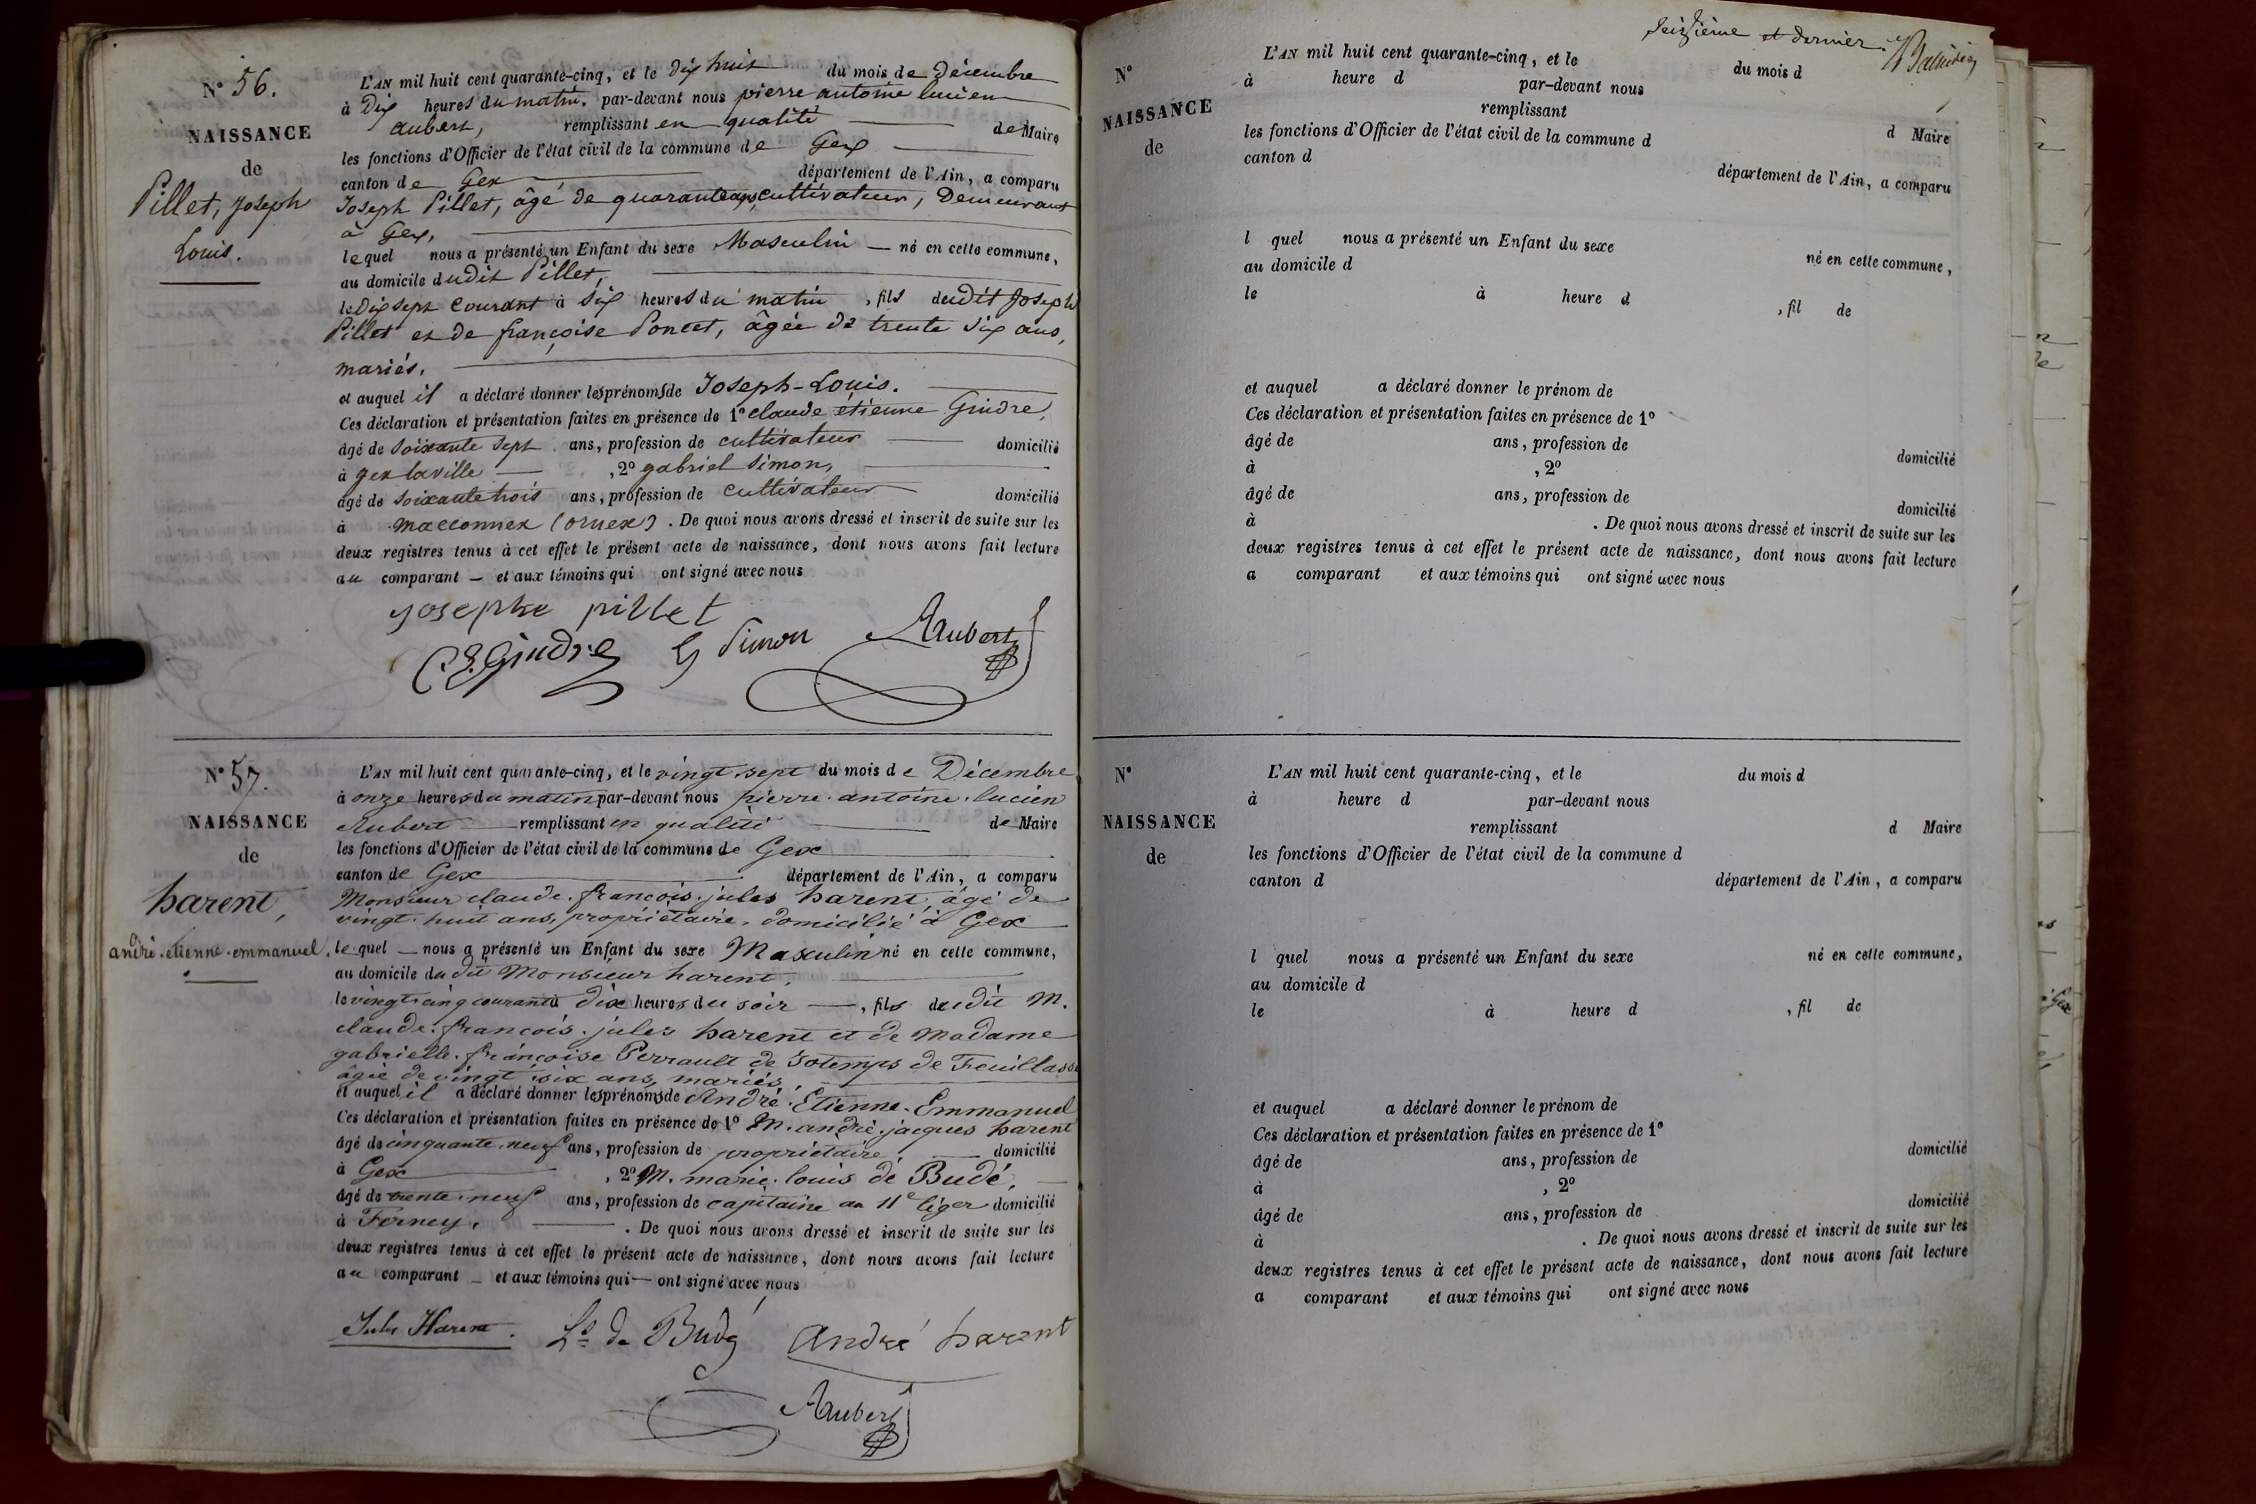 N° 56.
NAISSANCE
de
Pillet, Joseph
Louis.
L'AN mil huit cent quarante-cinq, et le dix huit du mois de Décembre
à Dix heures du matin, par-devant nous pierre antoine lucien
aubert, remplissant en qualité de Maire
les fonctions d'Officier de l'état civil de la commune de Gex
canton de Gex, département de l'Ain, a comparu
Joseph Pillet, âgé de quarante ans, cultivateur, Demeurant
à Gex,
lequel nous a présenté un Enfant du sexe Masculin né en cette commune,
au domicile dudit Pillet,
le Dix sept courant à six heures du matin, fils dudit Joseph
Pillet et de françoise Poncet, âgée de trente six ans,
mariés.
et auquel il a déclaré donner les prénoms de Joseph-Louis.
Ces déclaration et présentation faites en présence de 1° claude etienne Gindre,
âgé de soixante sept ans, profession de cultivateur domicilié
à gex la ville, 2° gabriel simon,
âgé de soixante trois ans, profession de cultivateur domicilié
à maconnex (ornex). De quoi nous avons dressé et inscrit de suite sur les
deux registres tenus à cet effet le présent acte de naissance, dont nous avons fait lecture
au comparant — et aux témoins qui ont signé avec nous
josephe pillet
C. E. Gindre G Simon Aubert
N° 57.
NAISSANCE
de
harent,
andré-etienne-emmanuel.
L'AN mil huit cent quarante-cinq, et le vingt-sept du mois de Décembre
à onze heures du matin par-devant nous pierre-antoine-lucien
Aubert remplissant en qualité de Maire
les fonctions d'Officier de l'état civil de la commune de Gex
canton de Gex département de l'Ain, a comparu
Monsieur claude-françois-jules harent, âgé de
vingt-huit ans, propriétaire, domicilié à Gex
lequel — nous a présenté un Enfant du sexe Masculin né en cette commune,
au domicile du dit Monsieur harent,
le vingt-cinq courant à dix heures du soir —, fils dudit M.
claude-françois-jules harent et de Madame
gabrielle-françoise Perrault de Jotemps de Feuillasse
âgée de vingt-six ans, mariés,
et auquel il a déclaré donner les prénoms de André-Etienne-Emmanuel
Ces déclaration et présentation faites en présence de 1° M. andré-jacques harent
âgé de cinquante-neuf ans, profession de propriétaire domicilié
à Gex, 2° M. marie-louis de Budé,
âgé de trente-neuf ans, profession de capitaine au 11e léger domicilié
à Ferney. De quoi nous avons dressé et inscrit de suite sur les
deux registres tenus à cet effet le présent acte de naissance, dont nous avons fait lecture
au comparant — et aux témoins qui — ont signé avec nous
Jules Harent. Ls de Budé André harent
Aubert
seizième et dernier.
N°
NAISSANCE
de
L'AN mil huit cent quarante-cinq, et le du mois d
à heure d par-devant nous
remplissant d Maire
les fonctions d'Officier de l'état civil de la commune d
canton d département de l'Ain, a comparu
l quel nous a présenté un Enfant du sexe né en cette commune,
au domicile d
le à heure d , fil de
et auquel a déclaré donner le prénom de
Ces déclaration et présentation faites en présence de 1°
âgé de ans, profession de domicilié
à , 2°
âgé de ans, profession de domicilié
à . De quoi nous avons dressé et inscrit de suite sur les
deux registres tenus à cet effet le présent acte de naissance, dont nous avons fait lecture
a comparant et aux témoins qui ont signé avec nous
N°
NAISSANCE
de
L'AN mil huit cent quarante-cinq, et le du mois d
à heure d par-devant nous
remplissant d Maire
les fonctions d'Officier de l'état civil de la commune d
canton d département de l'Ain, a comparu
l quel nous a présenté un Enfant du sexe né en cette commune,
au domicile d
le à heure d , fil de
et auquel a déclaré donner le prénom de
Ces déclaration et présentation faites en présence de 1°
âgé de ans, profession de domicilié
à , 2°
âgé de ans, profession de domicilié
à . De quoi nous avons dressé et inscrit de suite sur les
deux registres tenus à cet effet le présent acte de naissance, dont nous avons fait lecture
a comparant et aux témoins qui ont signé avec nous